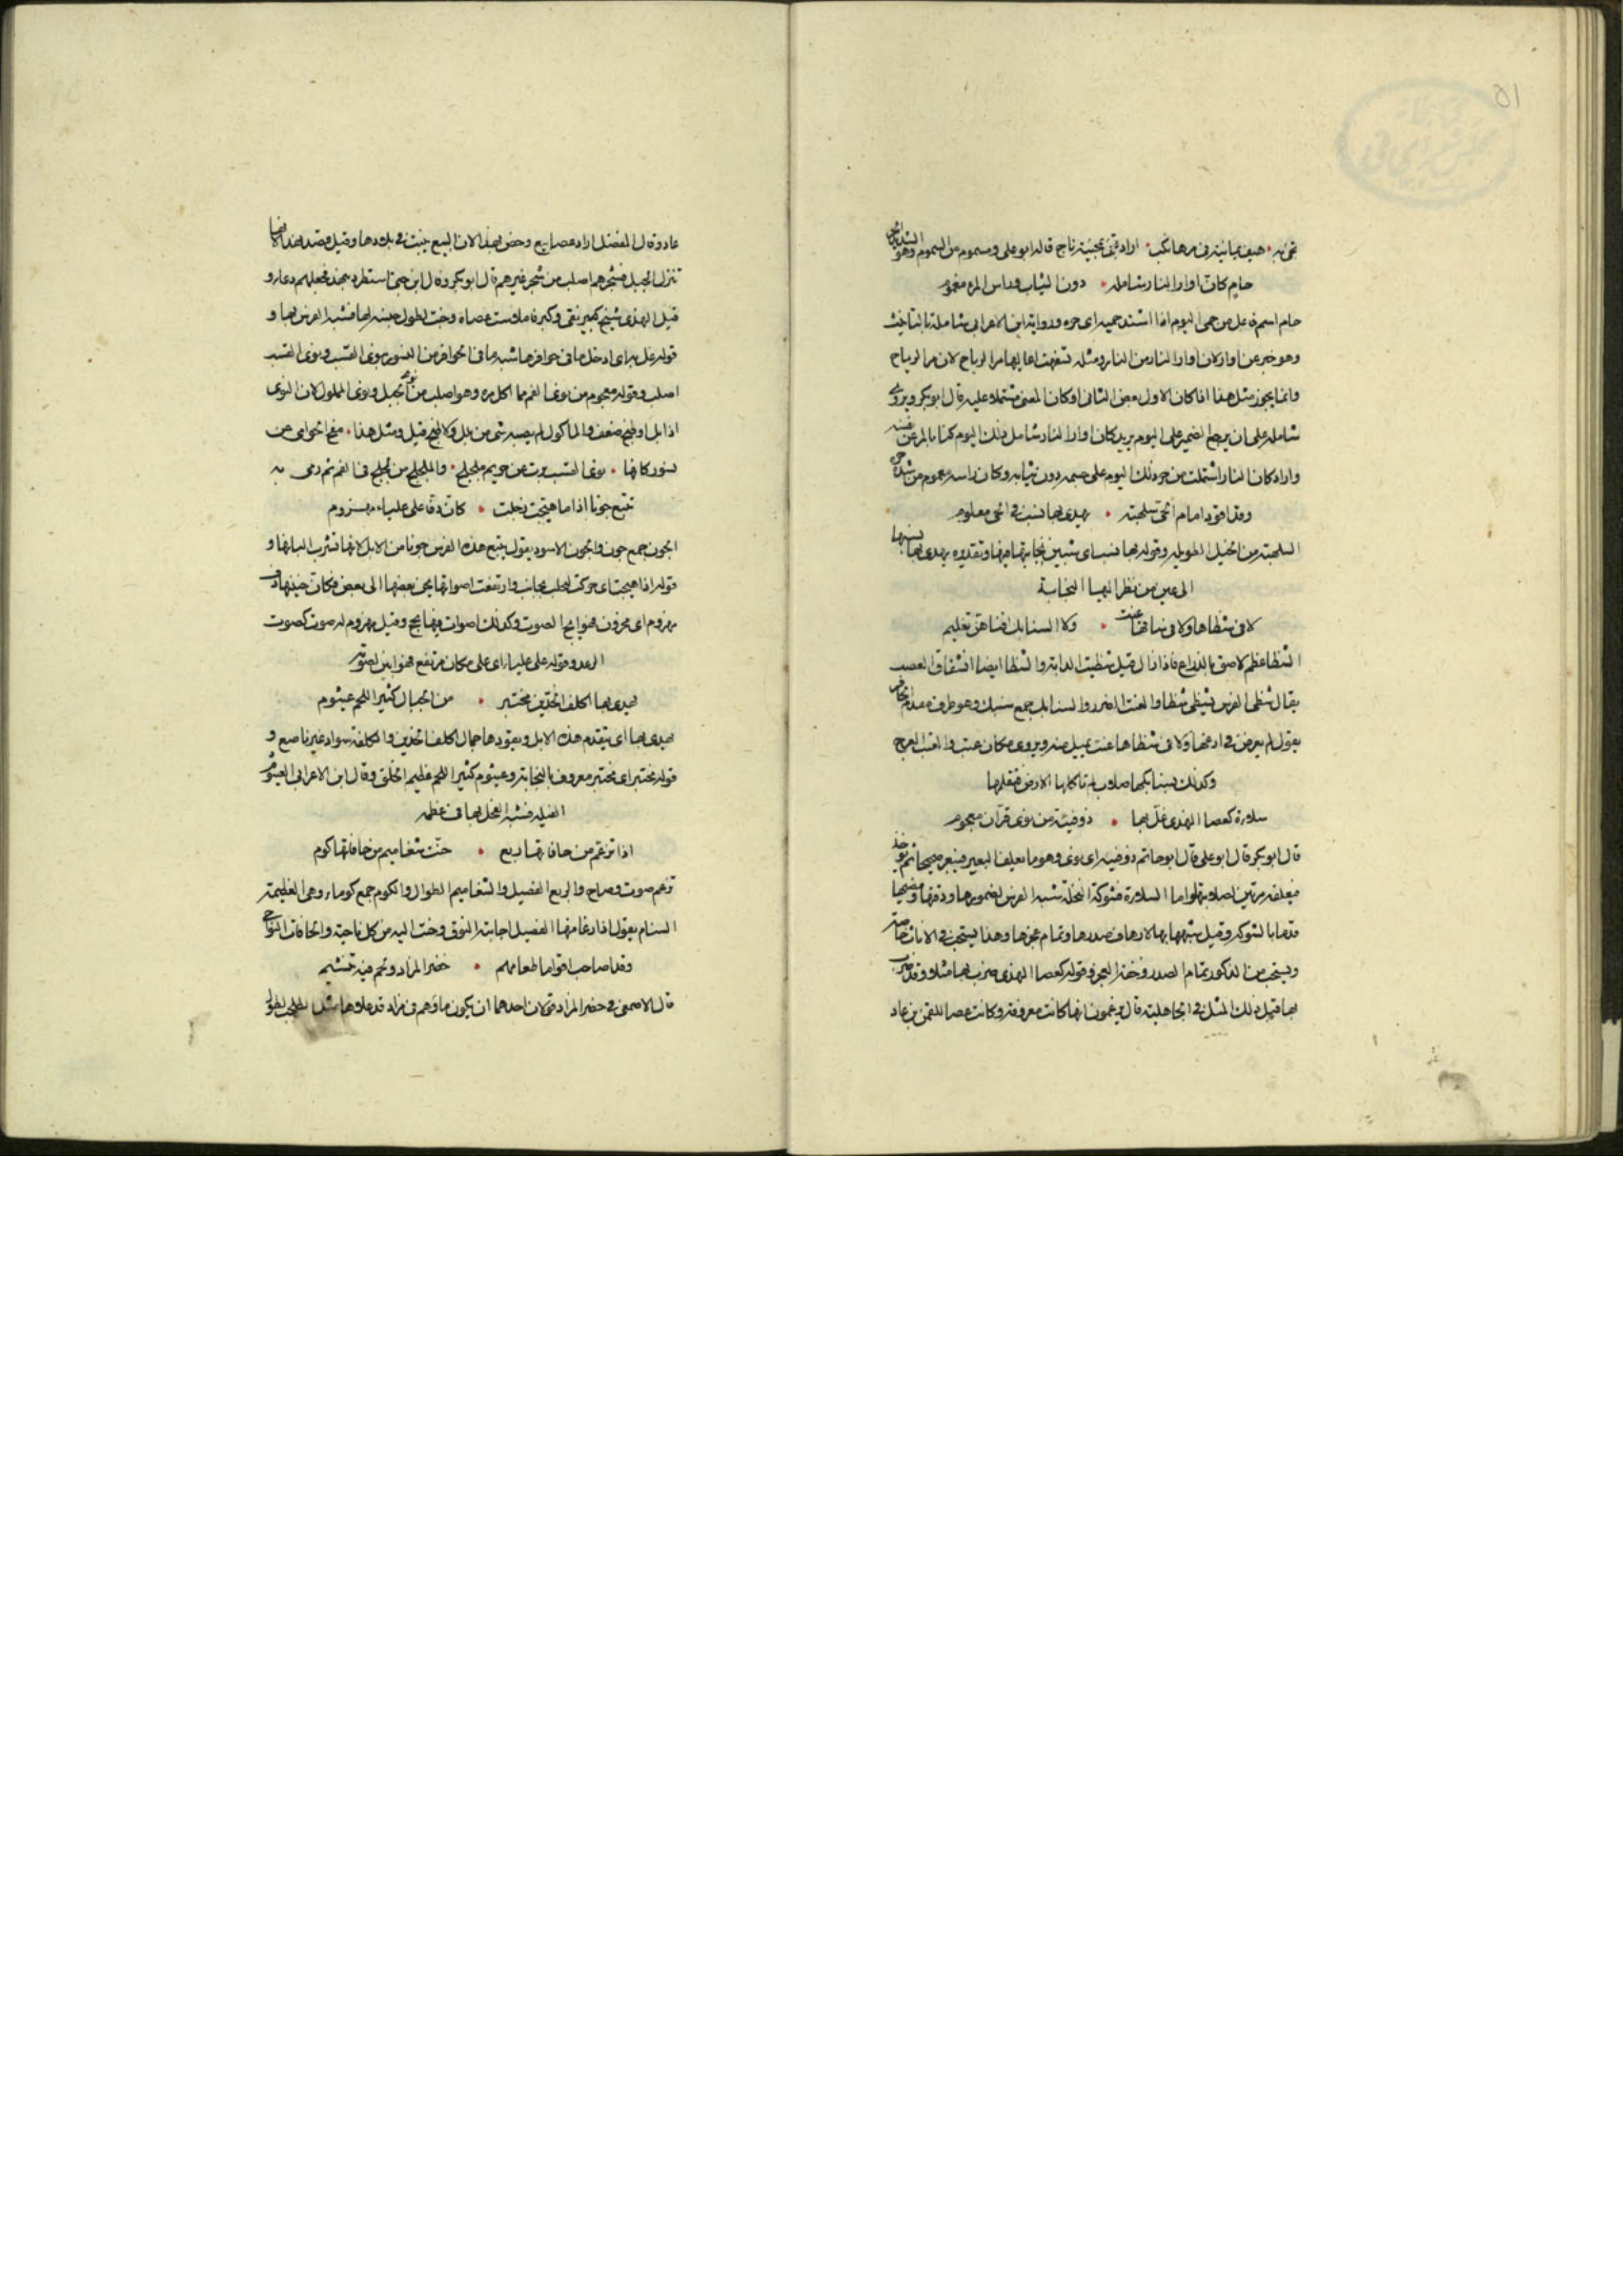 حام كان اوار النار شامله دون الثياب وراس المرء مغموم
حام اسم فاعل من حمى اليوم اذا اشتد حميه اى حره ورواية ابن الاعرابى شاملة بالتانيث
وهو خبر عن اوار لان اوار النار من النار ومثله تسفهت اعاليها مر الرياح لان مر الرياح
وانما يجوز مثل هذا اذا كان الاول بعض الثانى او كان المعنى مشتملا عليه قال ابو بكر ويروى
شامله على ان يرجع الضمير على اليوم يريد كان اوار النار شامل ذلك اليوم
واراد كان النار اشتملت من حر ذلك اليوم على جسمه دون ثيابه وكان راسه معموم من شدة حره
وقد اقود امام الحى سلهبة يهدى بها نسب فى الحى معلوم
السلهبة من الخيل الطويلة وقوله بها نسب اى تبين نجابتها فيها وتقدوه يهدى بها نسبها
الى عين من نظر اليها النجابة
لا فى شظاها ولا فى ارساغها عنت ولا السنابك افناهن تقليم
الشظا عظم لاصق بالذراع فاذا زال قيل شظيت الدابة والشظا ايضا انشقاق العصب
يقال شظى الفرس يشظى شظا والعنت الضرر والسنابك جمع سنبك وهو طرف مقدم الحافر
يقول لم يعرض فى ارساغها ولا فى شظاها عنت ويروى مكان عنت والعتب العرج
وكذلك سنابكها صلاب لم تاكلها الارض فتقلمها
سلاءة كعصا النهدى غل بها ذو فيئة من نوى قران معجوم
قال ابو بكر قال ابو على قال ابو حاتم ذو فيئة اى نوى وهو ما يعلف البعير فيبعره صحيحا ثم يؤخذ
فيعلفه مرتين لصلابته واما السلاءة فشوكة النخلة شبه الفرس لضمورها ودقتها
بالشوكة وقيل شبهها بها لارهاف صدرها وتمام عجزها وهذا يستحب فى الاناث خاصة
ويستحب من الذكور تمام الصدر وخفة العجز وقوله كعصا النهدى ضرب بها مثلا
بها قبل ذلك المثل فى الجاهلية قال ويزعمون انها كانت معروفة وكانت عصا للقمن بن عاد
عاد وقال المفضل اراد عصا نبع وخص نهدا لان النبع ينبت فى بلادها وقيل قصد نهدا لانها
تنزل الجبل فشجرهم اصلب من شجر غيرهم قال ابو بكر وقال ابن حبى استطرد بنهد فجعلهم دعاء و
قيل النهدى شيخ كبير نقى وكبر فاملاست عصاه وخفت لطول حبسه لها فشبه الفرس بها و
قوله غل بها اى ادخل ما فى حوافرها شبه ما فى الحوافر من النسور بنوى القسب ونوى القسب
اصلب وقوله معجوم من نوى الفم مما اكل مره وهو اصلب من نوى
اذا بل او طبخ ضعف والماكول لم يصبه شى من بلل ولا طبخ قيل ومثل هذا
نسور كانها نوى القسب ترت عن جريم ملجلج والملجلج من لجلج فى الفم ثم رمى به
تتبع جونا اذا ما هيجت زجلت كان دفا على علياء مهزوم
الجون جمع جون والجون الاسود يقول يتبع هذه الفرس جونا من الابل لانها تشرب البانها و
قوله اذا هيجت اى حركت لحلب وارتفعت اصواتها يحن بعضها الى بعض فكان حنينها دف
مهزوم اى مخروق فهو ابح الصوت وكذلك اصوات فيها بحح وقيل مهزوم له صوت كصوت
الرعد وقوله على علياء اى على مكان مرتفع فهو ابين لصوته
يهدى بها اكلف الخدين مختبر من الجمال كثير اللحم عيثوم
يهدى بها اى يتقدم هذه الابل ويقودها جمال اكلف الخدين والكلفة سواد غير ناصع و
قوله مختبر اى مختبر معروف بالنجابة وعيثوم كثير اللحم عظيم الخلق وقال ابن الاعرابى العيثوم
الفيلة فشبه الفحل بها فى عظمه
اذا تزغم من حافاتها ربع حنت شغاميم من حافاتها كوم
تزغم صوت وصاح والربع الفصيل والشغاميم الطوال والكوم جمع كوماء وهى العظيمة
السنام يقول اذا رغا منها الفصيل اجابته النوق وحنت اليه من كل ناحية والحافات النواحى
وقد اصاحب اقواما طعامهم خضر المزاد ولحم فيه تنشيم
قال الاصمعى فى خضر المزاد قولان احدهما ان يكون ماؤهم فى مزاد قد علاها مثل الطحلب لطول